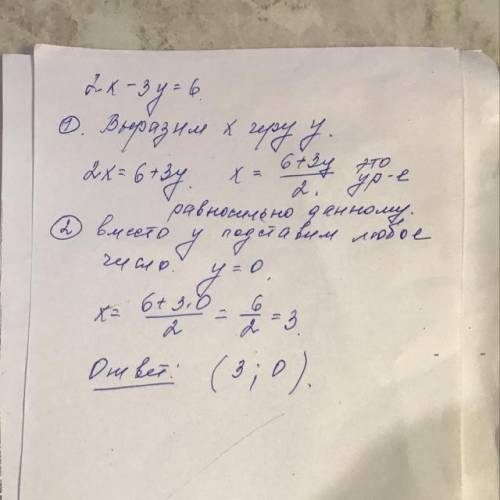 2x-3y=6.
①. Выразим x через y.
2x=6+3y. x = \frac{6+3y}{2}. это ур-е
равносильно данному.
② вместо y подставим любое
число. y=0.
x= \frac{6+3·0}{2} = \frac{6}{2} =3.
Ответ: (3;0).